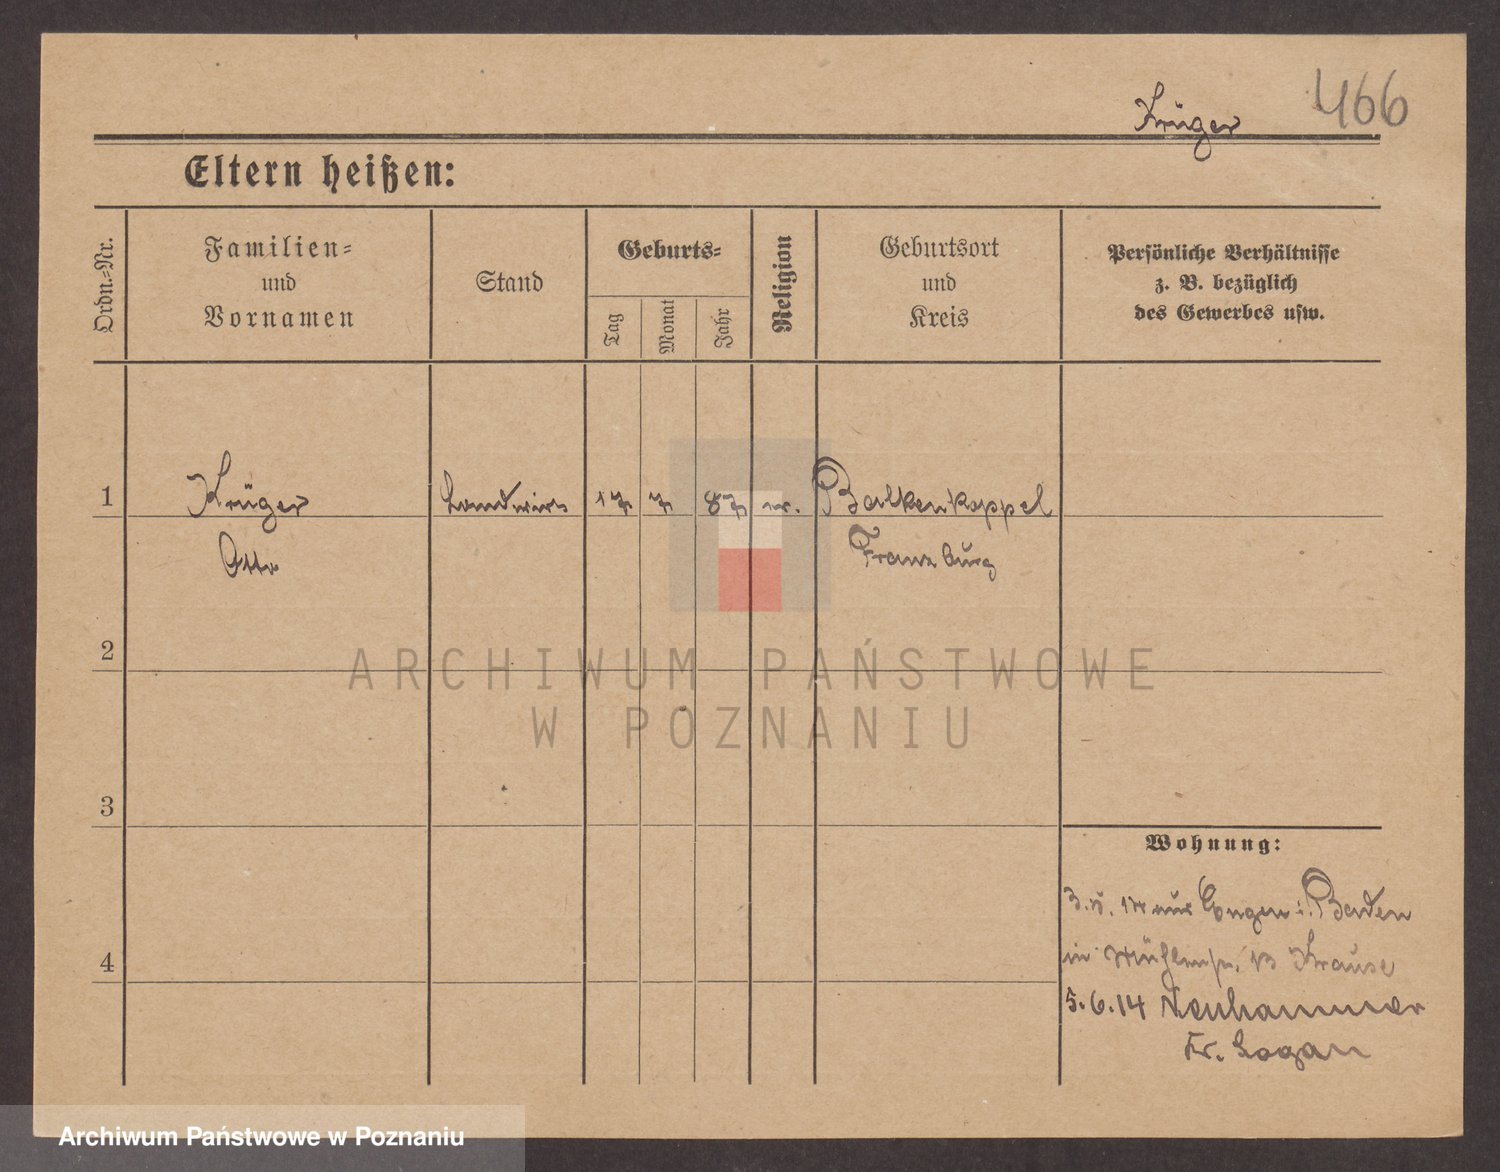 Krüger 466
Eltern heißen:
Ordn.-Nr.
Familien-
und
Vornamen
Stand
Geburts-
Tag
Monat
Jahr
Religion
Geburtsort
und
Kreis
Persönliche Verhältnisse
z. B. bezüglich
des Gewerbes usw.
1 Krüger Landwirt 17 7 87 Balkenkoppel
Otto Franzburg
2
3
4
Wohnung:
aus Engen i. Baden
in Mühlenstr. 13 Krause
5.6.14 Neuhammer
Kr. Sagan
ARCHIWUM PAŃSTWOWE
W POZNANIU
Archiwum Państwowe w Poznaniu